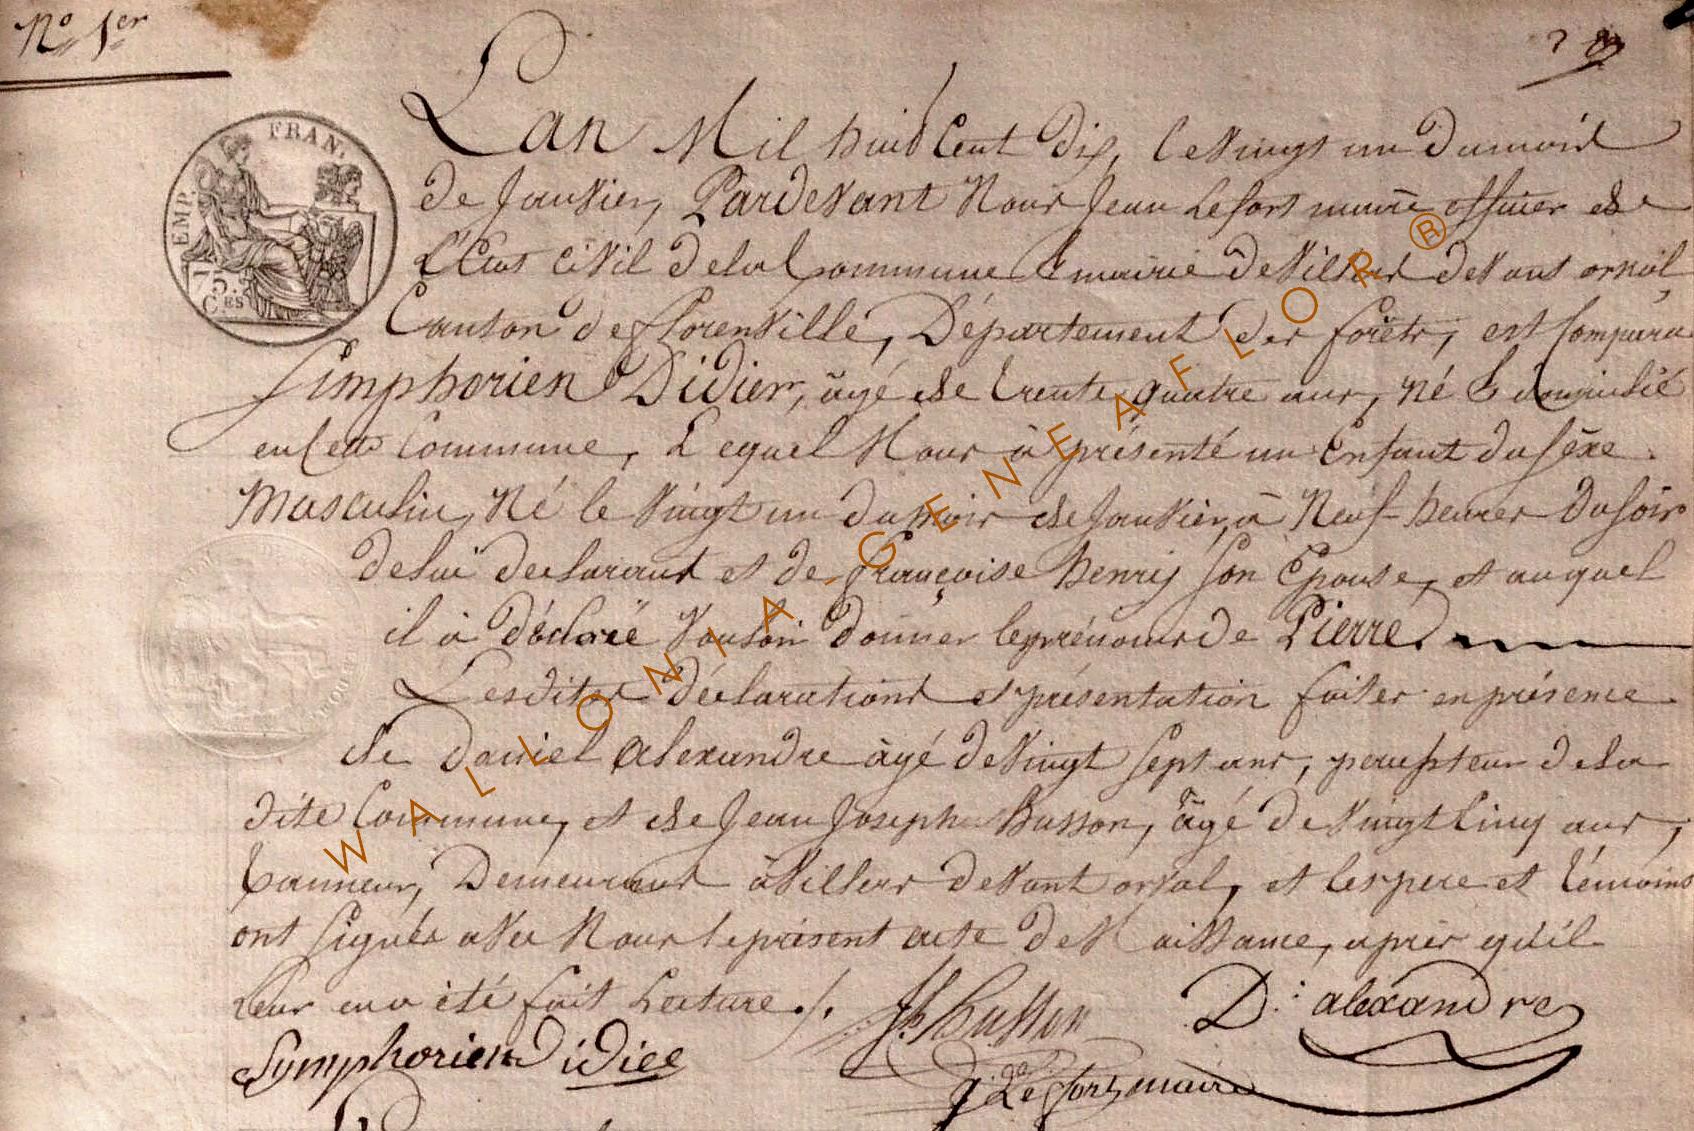 No 1er
L'an Mil huit Cent Dix, le Vingt un du mois
de Janvier, Pardevant Nous Jean Lefort maire officier de
L'Etat Civil de la Commune & mairie de Villers devant orval,
Canton de florenville, Département des forêts, est Comparu
Simphorien Didier, âgé de trente quatre ans, Né & domicilié
en Cette Commune, Lequel Nous à présenté un Enfant du Sexe
Masculin, Né le Vingt un du mois de Janvier, à Neuf heures du soir
de lui declarant et de Françoise henry son Epouse, et auquel
il à déclaré Vouloir donner les prénoms de Pierre.
Lesdites déclarations et présentation faites en présence
de Daniel alexandre âgé de Vingt sept ans, percepteur de la
dite Commune, et de Jean Joseph Husson, âgé de Vingt Cinq ans,
tanneur, Demeurant à Villers devant orval, et les pere et témoins
ont signés avec Nous le présent acte de Naissance, après qu'il
Leur en a été fait Lecture ./.
Jh husson
D: alexandre
Symphorien Didier
J: Lefort, maire
FRAN.
EMP.
75.
CES
WALLONIA-GENEAFLOR®